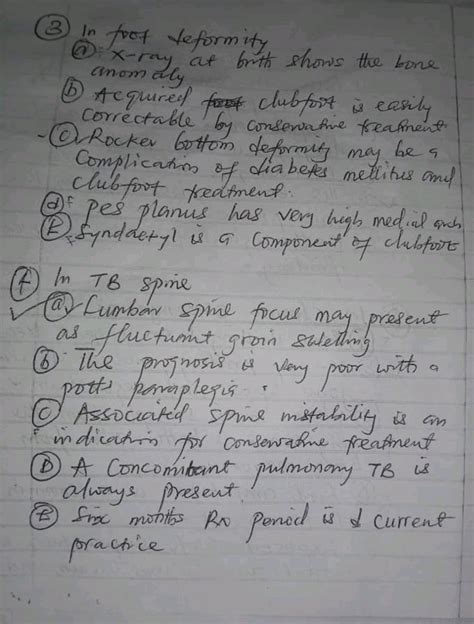 ③ In foot deformity
ⓐ: X-ray at brith shows the bone
anomaly
ⓑ Acquired clubfoot is easily
correctable by conservative treatment
-ⓒ Rocker bottom deformity may be a
complication of diabetes mellitus and
clubfoot treatment.
ⓓ: pes planus has very high medial arch
Ⓔ: Syndactyl is a component of clubfoot
④ In TB spine
ⓐ Lumbar spine focus may present
as fluctuant groin swelling
ⓑ The prognosis is very poor with a
potts paraplegia.
ⓒ Associated spine instability is an
indication for conservative treatment
Ⓓ A concomitant pulmonary TB is
always present.
Ⓔ Six months Rx period is current
practice